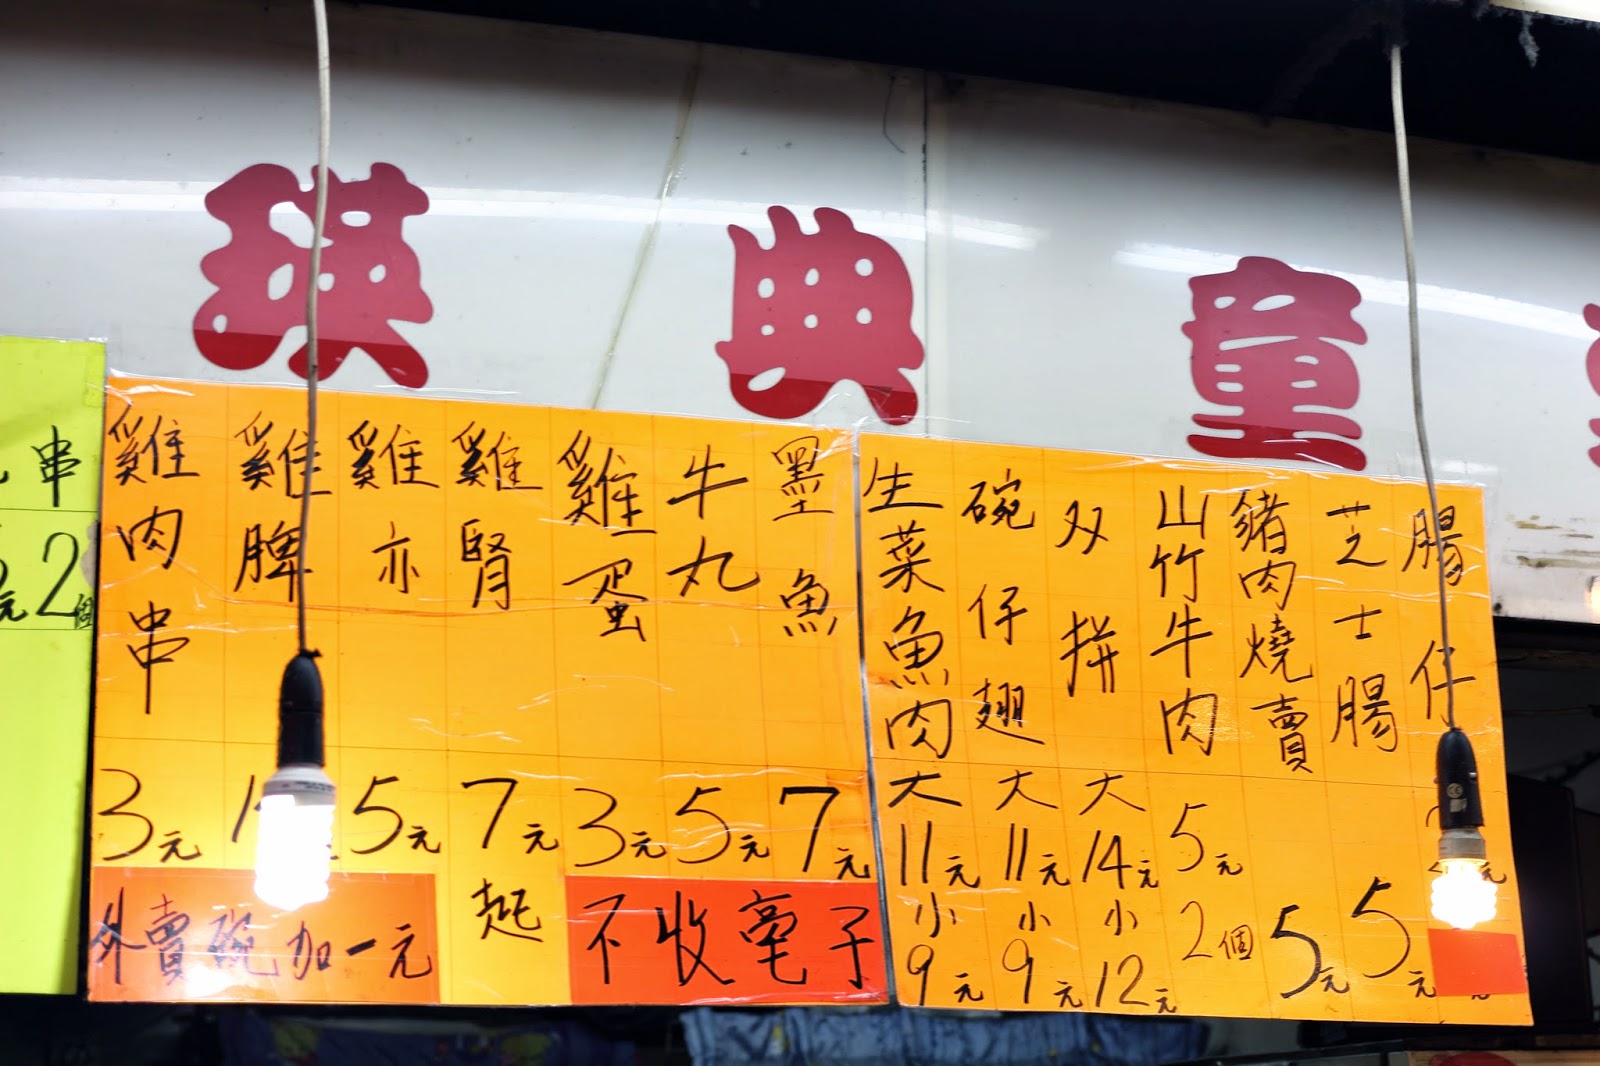 瑛典童
串
元2個
雞肉串 3元
雞脾
雞亦 5元
雞腎 7元起
雞蛋 3元
牛丸 5元
墨魚 7元
外賣碗加一元
不收毫子
生菜魚肉 大11元 小9元
碗仔翅 大11元 小9元
双拼 大14元 小12元
山竹牛肉 5元 2個
豬肉燒賣 5元
芝士腸 5元
腸仔